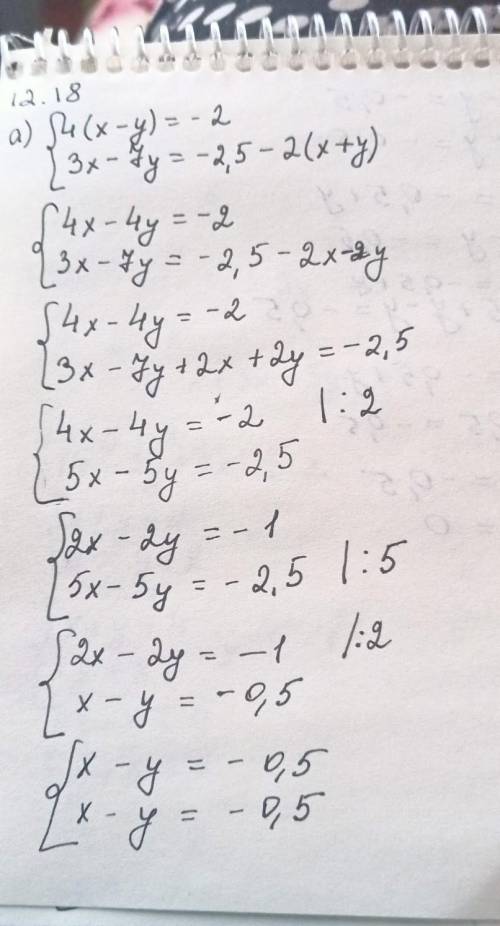 12.18
а) {4(x-y) = -2
{3x - 7y = -2,5 - 2(x+y)
{4x - 4y = -2
{3x - 7y = -2,5 - 2x - 2y
{4x - 4y = -2
{3x - 7y + 2x + 2y = -2,5
{4x - 4y = -2 |:2
{5x - 5y = -2,5
{2x - 2y = -1
{5x - 5y = -2,5 |:5
{2x - 2y = -1 |:2
{x - y = -0,5
{x - y = -0,5
{x - y = -0,5